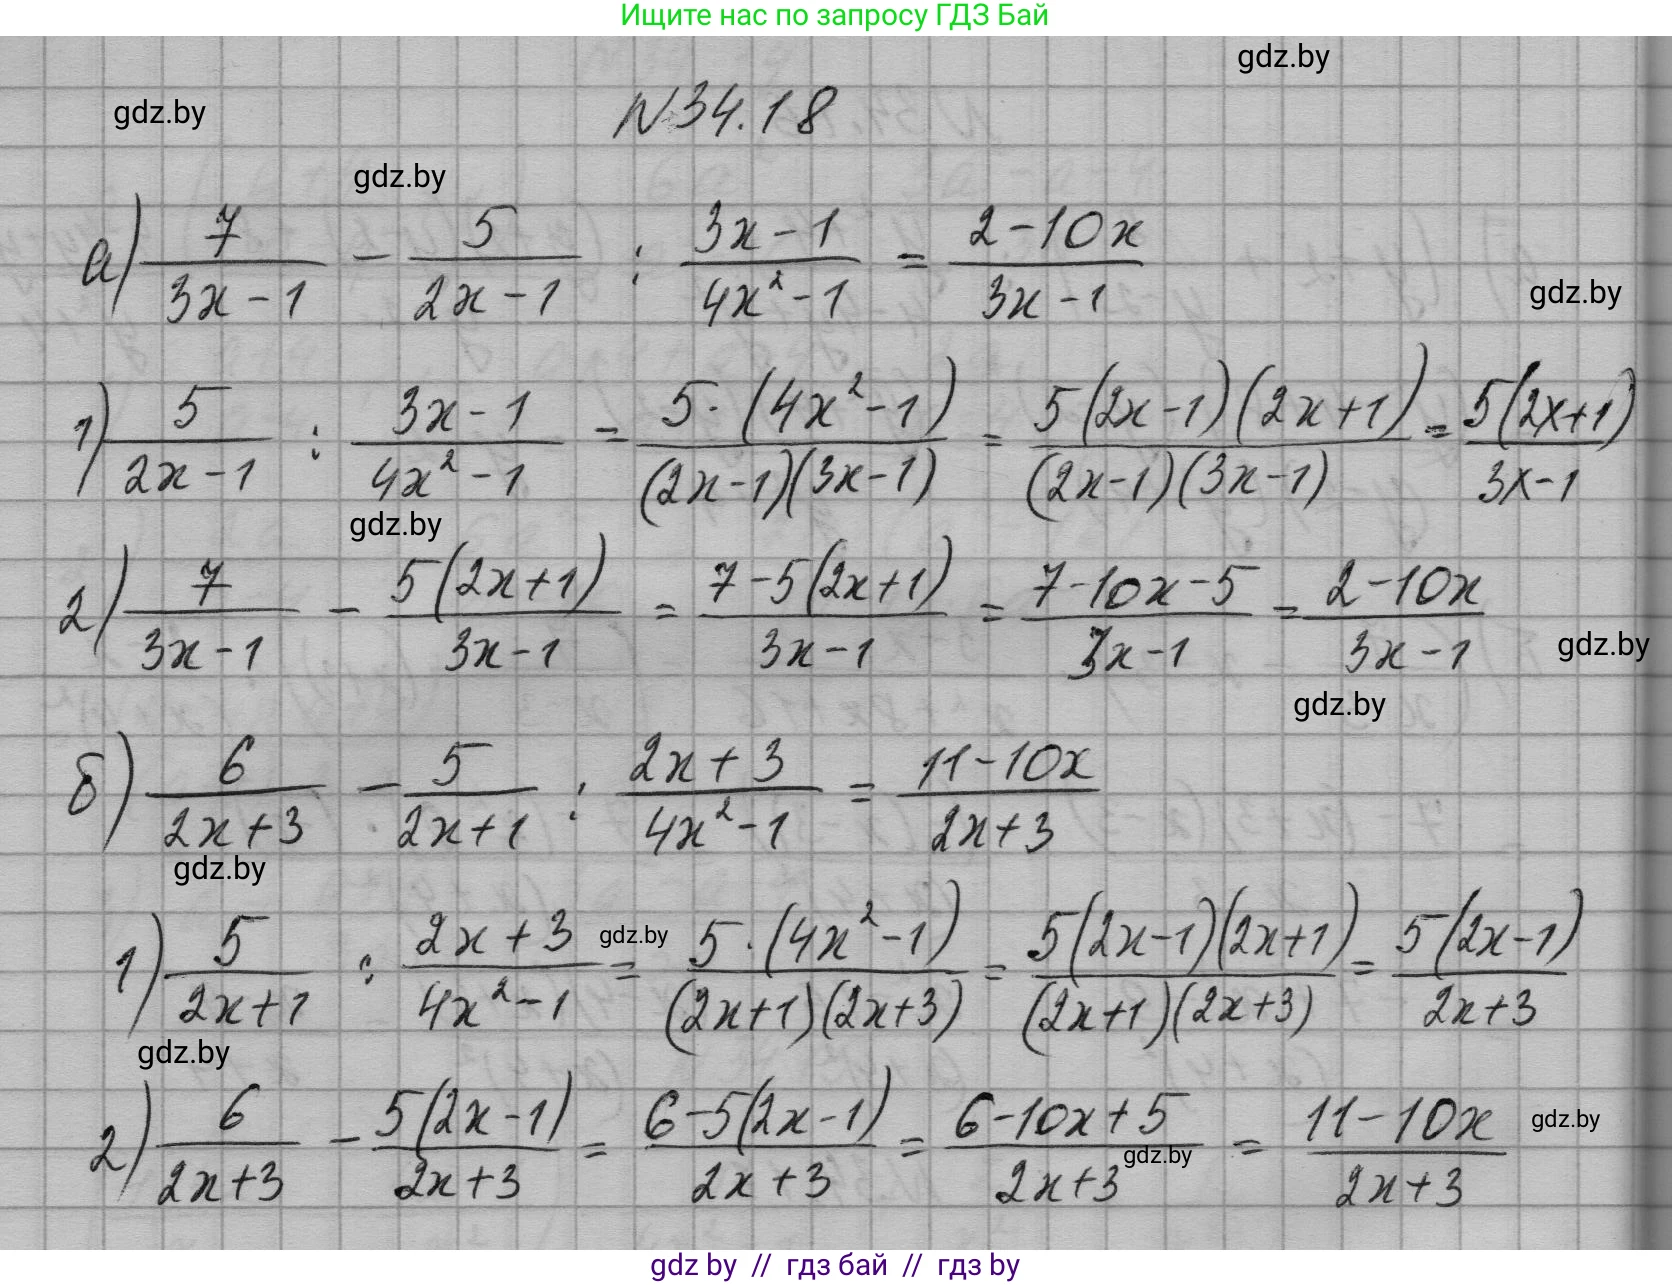 Ищите нас по запросу ГДЗ Бай
gdz.by
gdz.by
N34.18
gdz.by
а) 7/(3x-1) - 5/(2x-1) : (3x-1)/(4x²-1) = (2-10x)/(3x-1)
gdz.by
1) 5/(2x-1) : (3x-1)/(4x²-1) = 5·(4x²-1)/((2x-1)(3x-1)) = 5(2x-1)(2x+1)/((2x-1)(3x-1)) = 5(2x+1)/(3x-1)
gdz.by
2) 7/(3x-1) - 5(2x+1)/(3x-1) = (7-5(2x+1))/(3x-1) = (7-10x-5)/(3x-1) = (2-10x)/(3x-1)
gdz.by
gdz.by
б) 6/(2x+3) - 5/(2x+1) : (2x+3)/(4x²-1) = (11-10x)/(2x+3)
gdz.by
1) 5/(2x+1) : (2x+3)/(4x²-1) = 5·(4x²-1)/((2x+1)(2x+3)) = 5(2x-1)(2x+1)/((2x+1)(2x+3)) = 5(2x-1)/(2x+3)
gdz.by
gdz.by
2) 6/(2x+3) - 5(2x-1)/(2x+3) = (6-5(2x-1))/(2x+3) = (6-10x+5)/(2x+3) = (11-10x)/(2x+3)
gdz.by
gdz.by
gdz by // гдз бай // гдз by